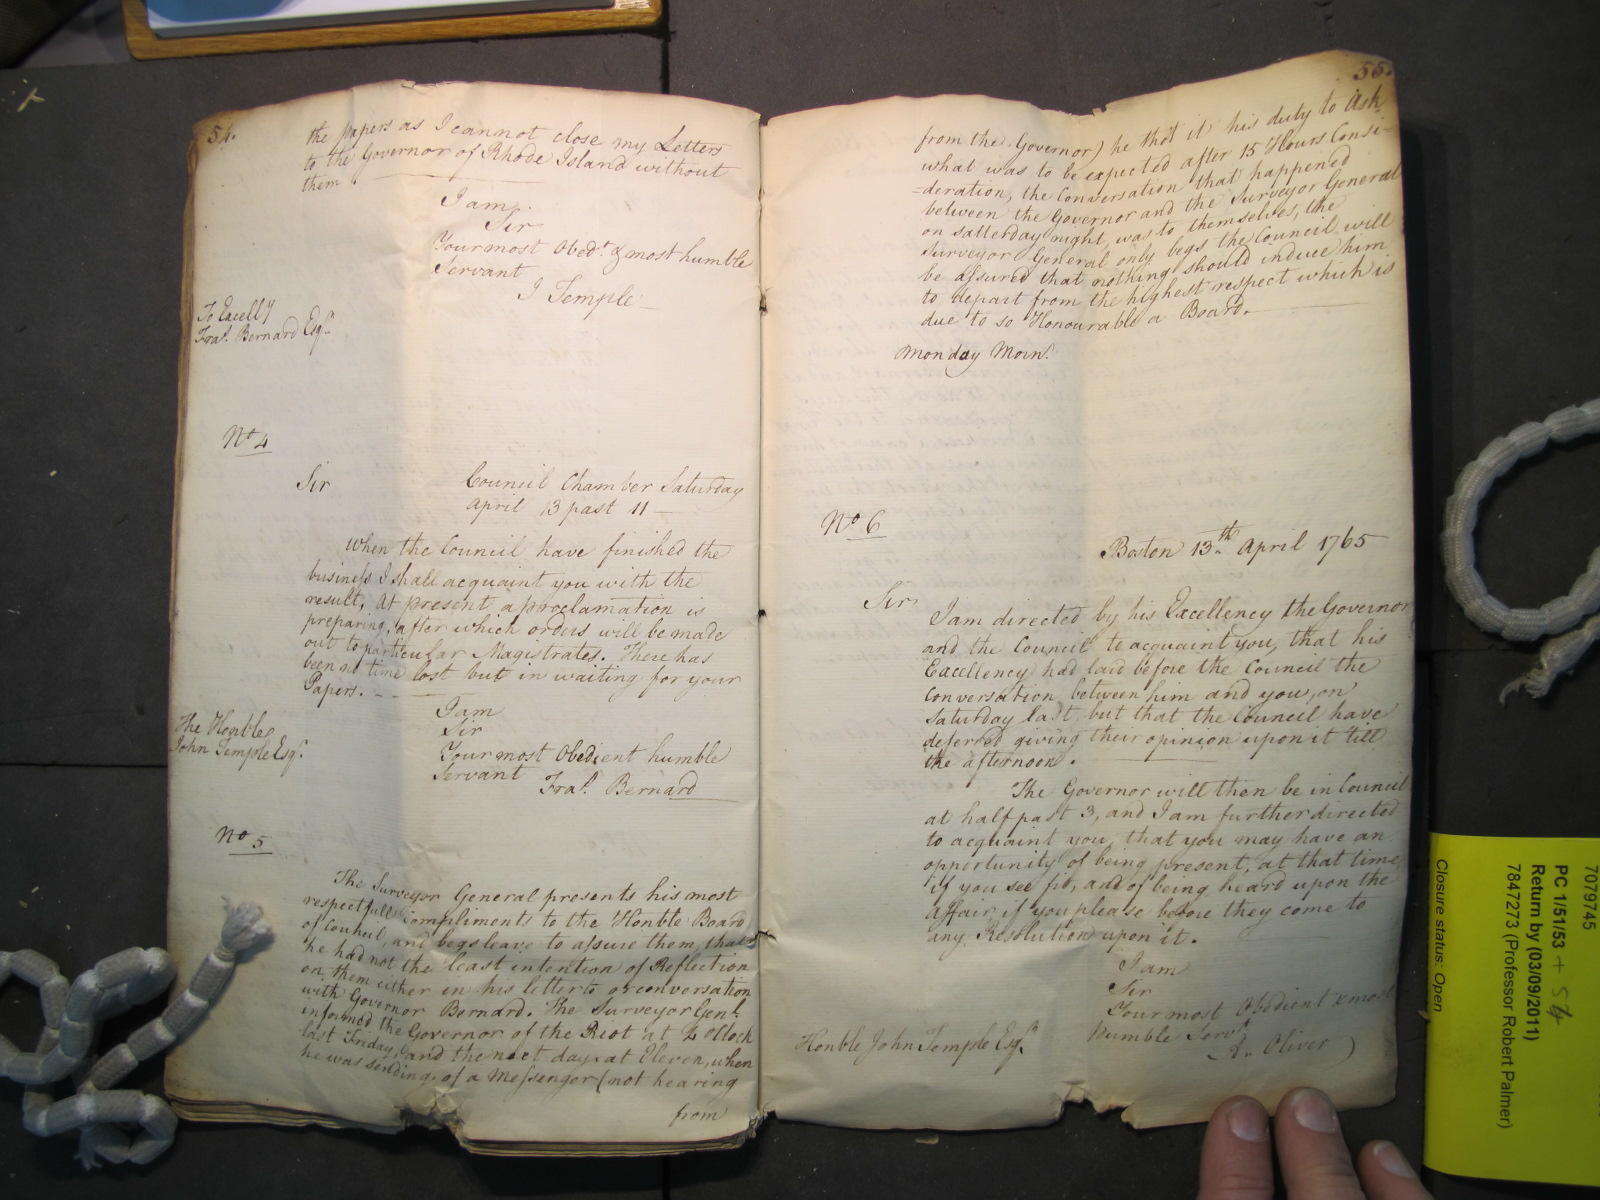 54.
the Papers as I cannot close my Letters
to the Governor of Rhode Island without
them.
I am.
Sir
Your most Obedt. & most humble
Servant
J Temple
To Excelly
Fras. Bernard Esqr.
No 4
Sir
Council Chamber Saturday
April 13 past 11
when the Council have finished the
business I shall acquaint you with the
result, at present a proclamation is
preparing, after which orders will be made
out to particular Magistrates. There has
been no time lost but in waiting for your
Papers.
I am
Sir
Your most Obedient humble
Servant
Fras. Bernard
The Honble
John Temple Esqr.
No 5
The Surveyor General presents his most
respectfull Compliments to the Honble Board
of Council, and begs leave to assure them, that
he had not the least intention of Reflection
on them either in his letter to or conversation
with Governor Bernard. The Surveyor Genl.
informed the Governor of the Riot at 2 oClock
last Friday, and the next day at Eleven, when
he was sending of a Messenger (not hearing
from
55.
from the Governor) he thot it his duty to Ask
what was to be expected after 15 Hours Consi-
-deration, the Conversation that happened
between the Governor and the Surveyor General
on satterday night, was to themselves, the
Surveyor General only begs the Council will
be assured that nothing should induce him
to depart from the highest respect which is
due to so Honourable a Board.
Monday Morn.
No 6
Boston 13th. April 1765
Sir
I am directed by his Excellency the Governor
and the Council to acquaint you, that his
Excellency had laid before the Council the
Conversation between him and you, on
Saturday last, but that the Council have
deferred giving their opinion upon it till
the afternoon.
The Governor will then be in Council
at half past 3, and I am further directed
to acquaint you, that you may have an
opportunity of being present, at that time
if you see fit, and of being heard upon the
Affair, if you please before they come to
any Resolution upon it.
I am
Sir
Your most Obedient & most
Humble Servt.
A. Oliver
Honble John Temple Esqr.
7079745
PC 1/51/53 + 54
Return by (03/09/2011)
7847273 (Professor Robert Palmer)
Closure status: Open